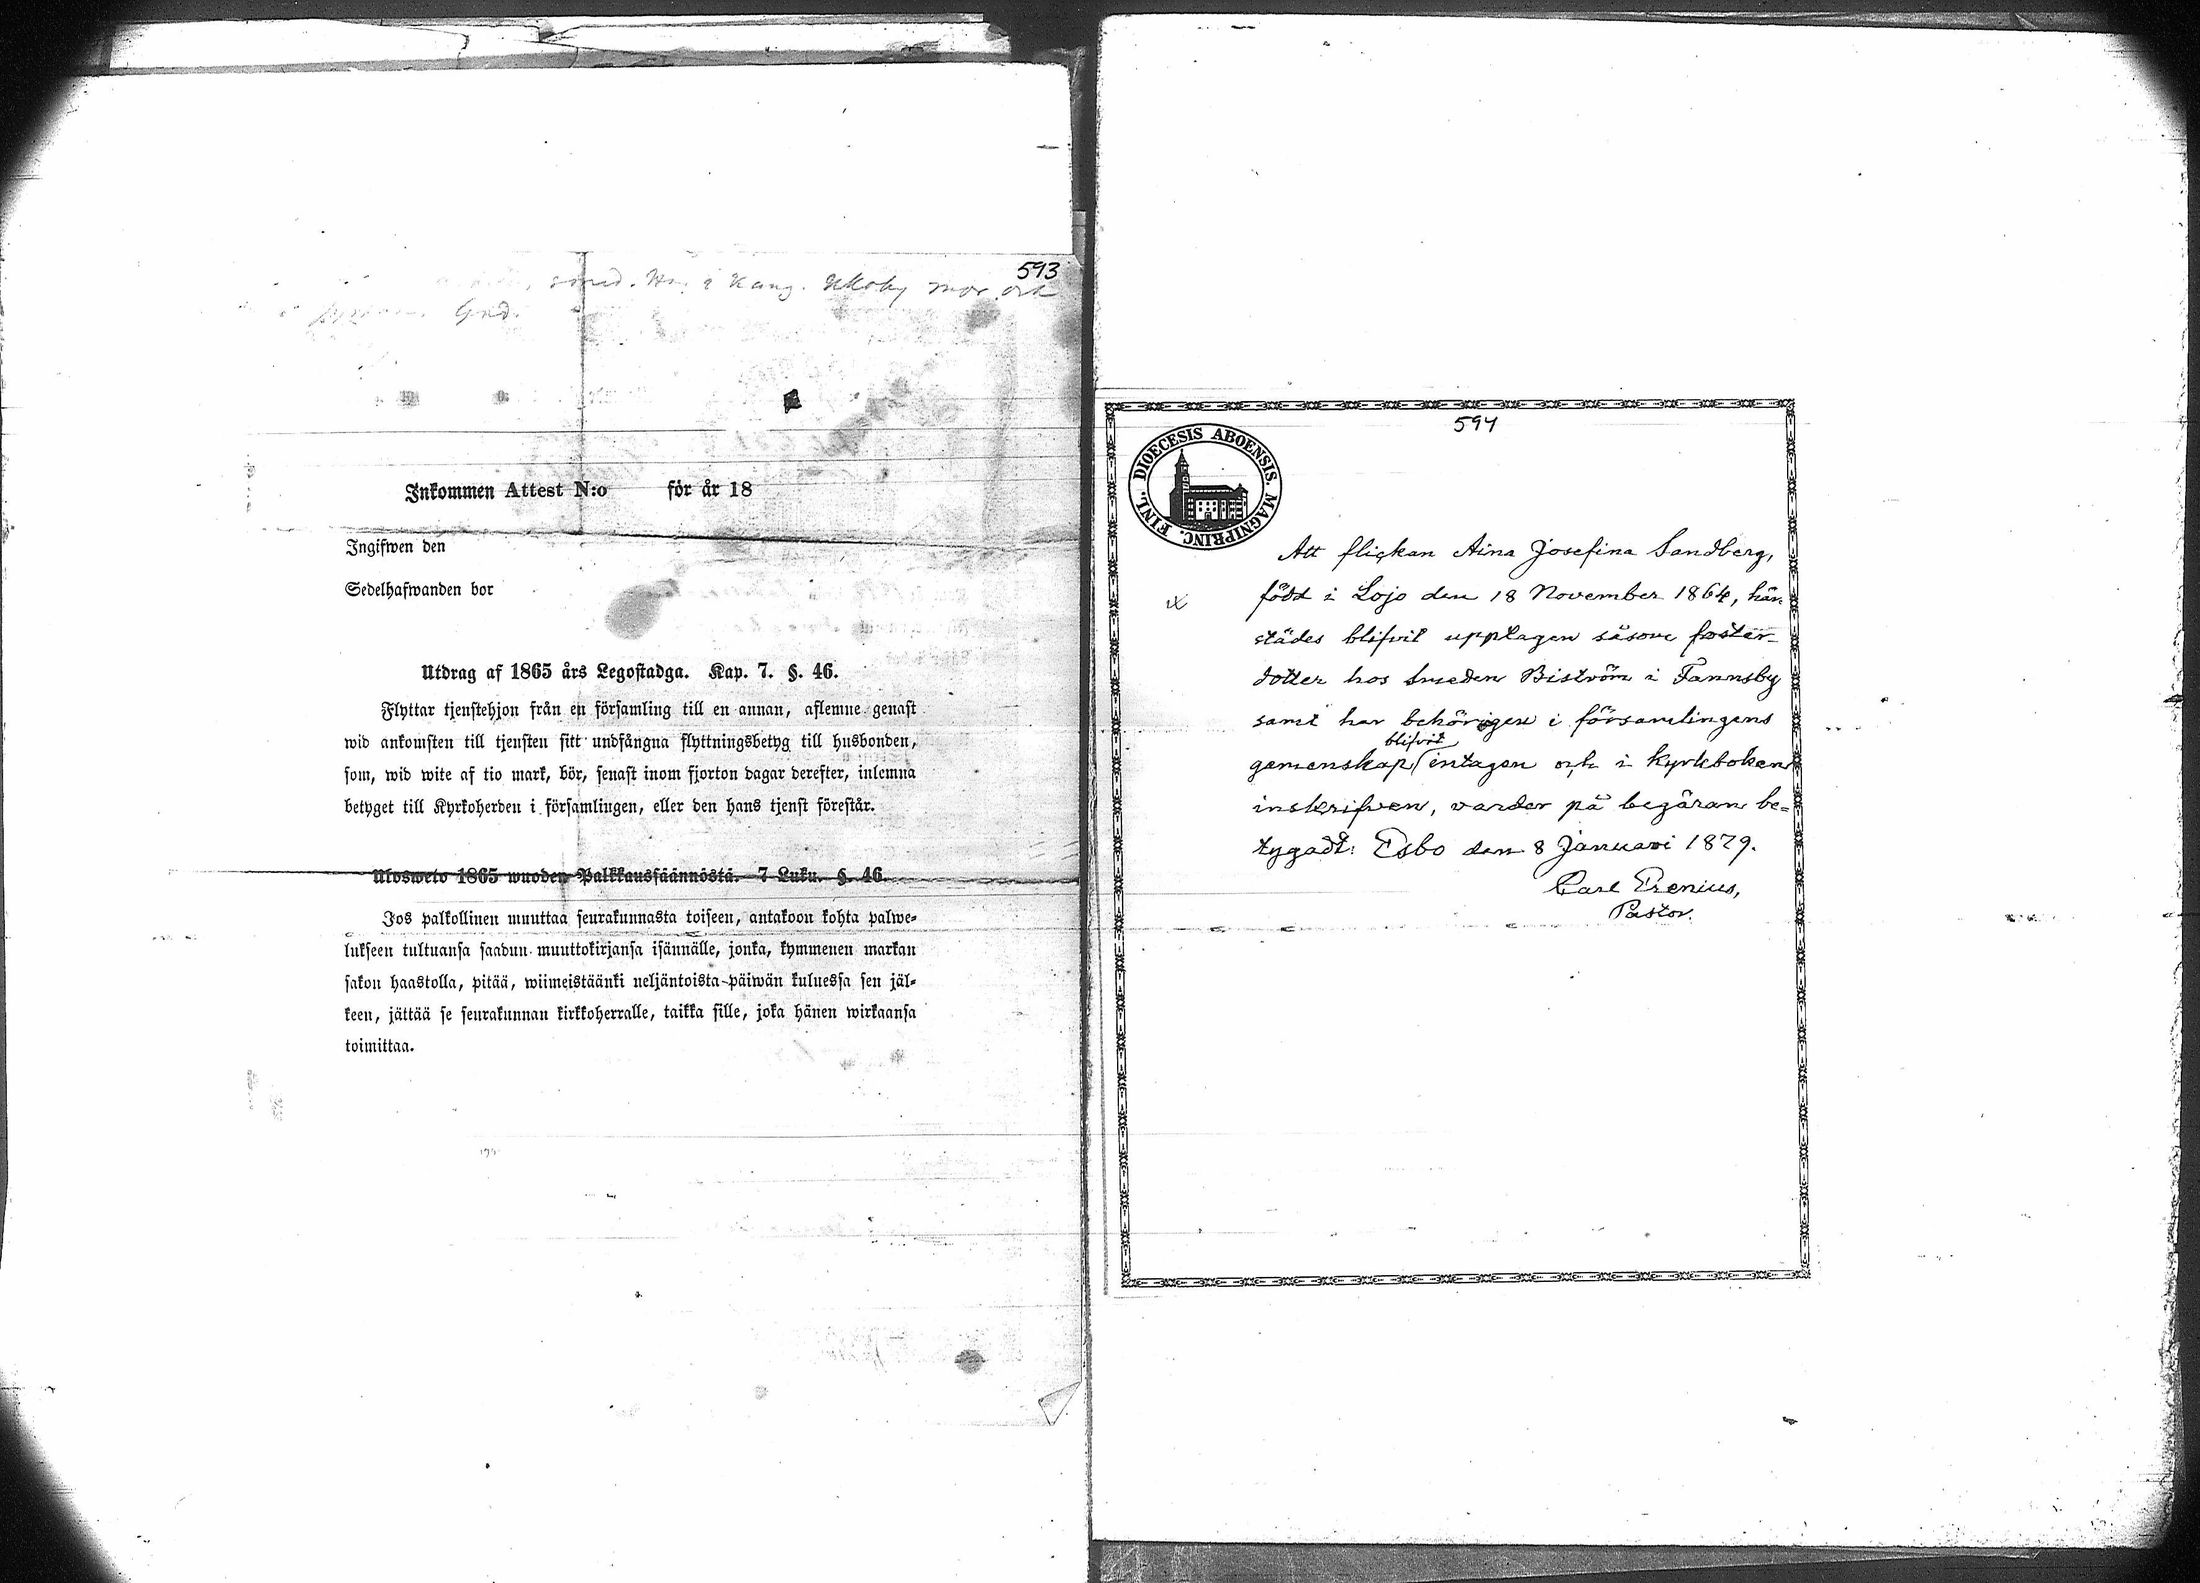 593
i Kang. Ukoby mor och
Gnd.
Inkommen Attest N:o för år 18
Ingifwen den
Sedelhafwanden bor
Utdrag af 1865 års Legostadga. Kap. 7. §. 46.
Flyttar tjenstehjon från en församling till en annan, aflemne genast
wid ankomsten till tjensten sitt undfångna flyttningsbetyg till husbonden,
som, wid wite af tio mark, bör, senast inom fjorton dagar derefter, inlemna
betyget till Kyrkoherden i församlingen, eller den hans tjenst förestår.
Ulosweto 1865 wuoden Palkkaussäännöstä. 7 Luku. §. 46.
Jos palkollinen muuttaa seurakunnasta toiseen, antakoon kohta palwe-
lukseen tultuansa saadun muuttokirjansa isännälle, jonka, kymmenen markan
sakon haastolla, pitää, wiimeistäänki neljäntoista-päiwän kuluessa sen jäl-
keen, jättää se seurakunnan kirkkoherralle, taikka sille, joka hänen wirkaansa
toimittaa.
594
DIOECESIS ABOENSIS. MAGNIPRINC. FINL.
Att flickan Aina Josefina Sandberg,
född i Lojo den 18 November 1864, här-
städes blifvit upptagen såsom foster-
dotter hos Smeden Biström i Fannsby
samt har behörigen i församlingens
blifvit
gemenskap intagen och i kyrkboken
inskrifven, varder på begäran be-
tygadt: Esbo den 8 Januari 1879.
Carl Erenius,
Pastor.